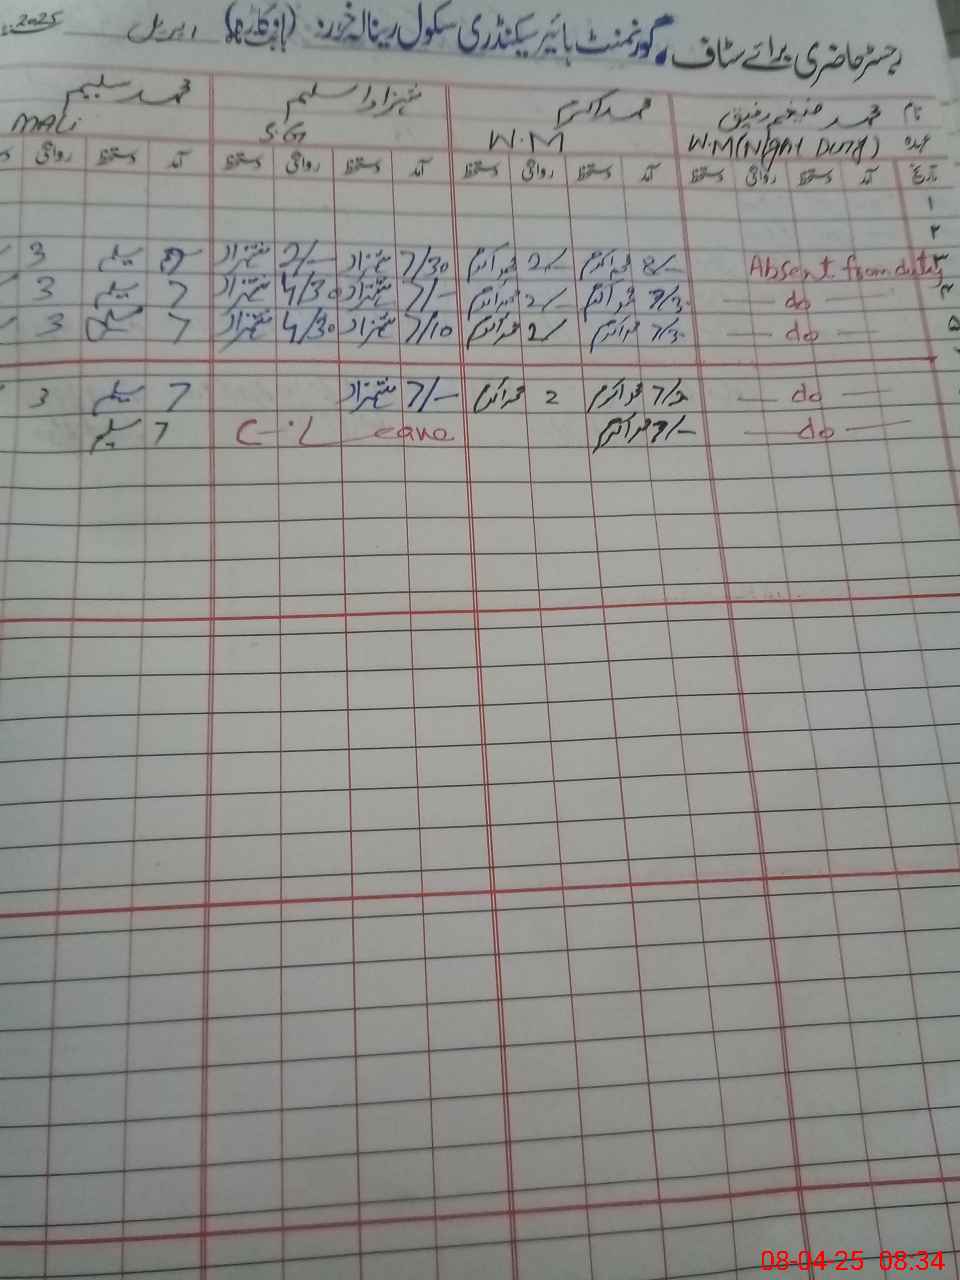 رجسٹر حاضری برائے سٹاف گورنمنٹ ہائیر سیکنڈری سکول رینالہ خورد (اوکاڑہ) اپریل 2025
نام محمد ضیغم رفیق محمد اکرم شہزاد اسلم محمد سلیم
عہدہ W.M (Night Duty) W.M S.G MALi
تاریخ آمد دستخط روانگی دستخط آمد دستخط روانگی دستخط آمد دستخط روانگی دستخط آمد دستخط روانگی
۱
۲
۳ Absent from duty 8/- محمد اکرم 2/- محمد اکرم 7/30 شہزاد 2/- شہزاد 8 سلیم 3
۴ do 7/3 محمد اکرم 2/ محمد اکرم 7/- شہزاد 4/30 شہزاد 7 سلیم 3
۵ do 7/3 محمد اکرم 2/ محمد اکرم 7/10 شہزاد 4/30 شہزاد 7 سلیم 3
do محمد اکرم 2 محمد اکرم 7/- شہزاد 7 سلیم 3
do محمد اکرم C.Leave 7 سلیم
08-04-25 08:34